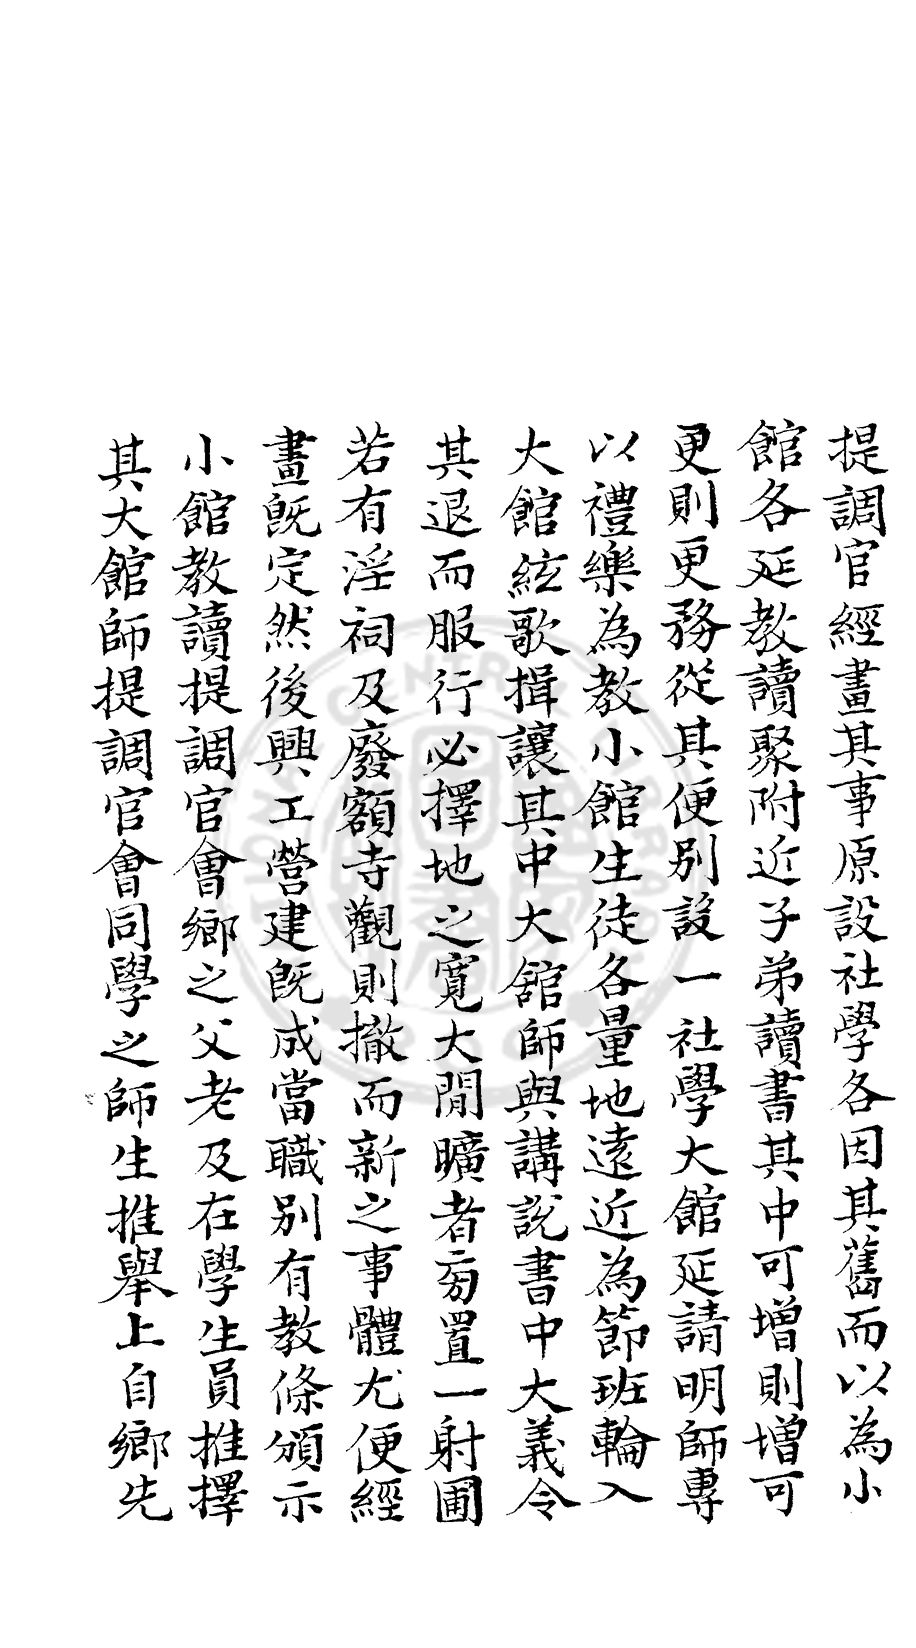 提調官經畫其事原設社學各因其舊而以為小
館各延教讀聚附近子弟讀書其中可增則增可
更則更務從其便別設一社學大館延請明師專
以禮樂為教小館生徒各量地遠近為節班輪入
大館絃歌揖讓其中大舘師與講說書中大義令
其退而服行必擇地之寬大閒曠者旁置一射圃
若有淫祠及廢額寺觀則撤而新之事體尤便經
畫旣定然後興工營建旣成當職別有教條頒示
小館教讀提調官會鄉之父老及在學生員推擇
其大館師提調官會同學之師生推舉上自鄉先